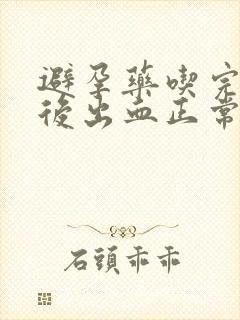 避孕藥喫完
後出血正常
石頭乖乖